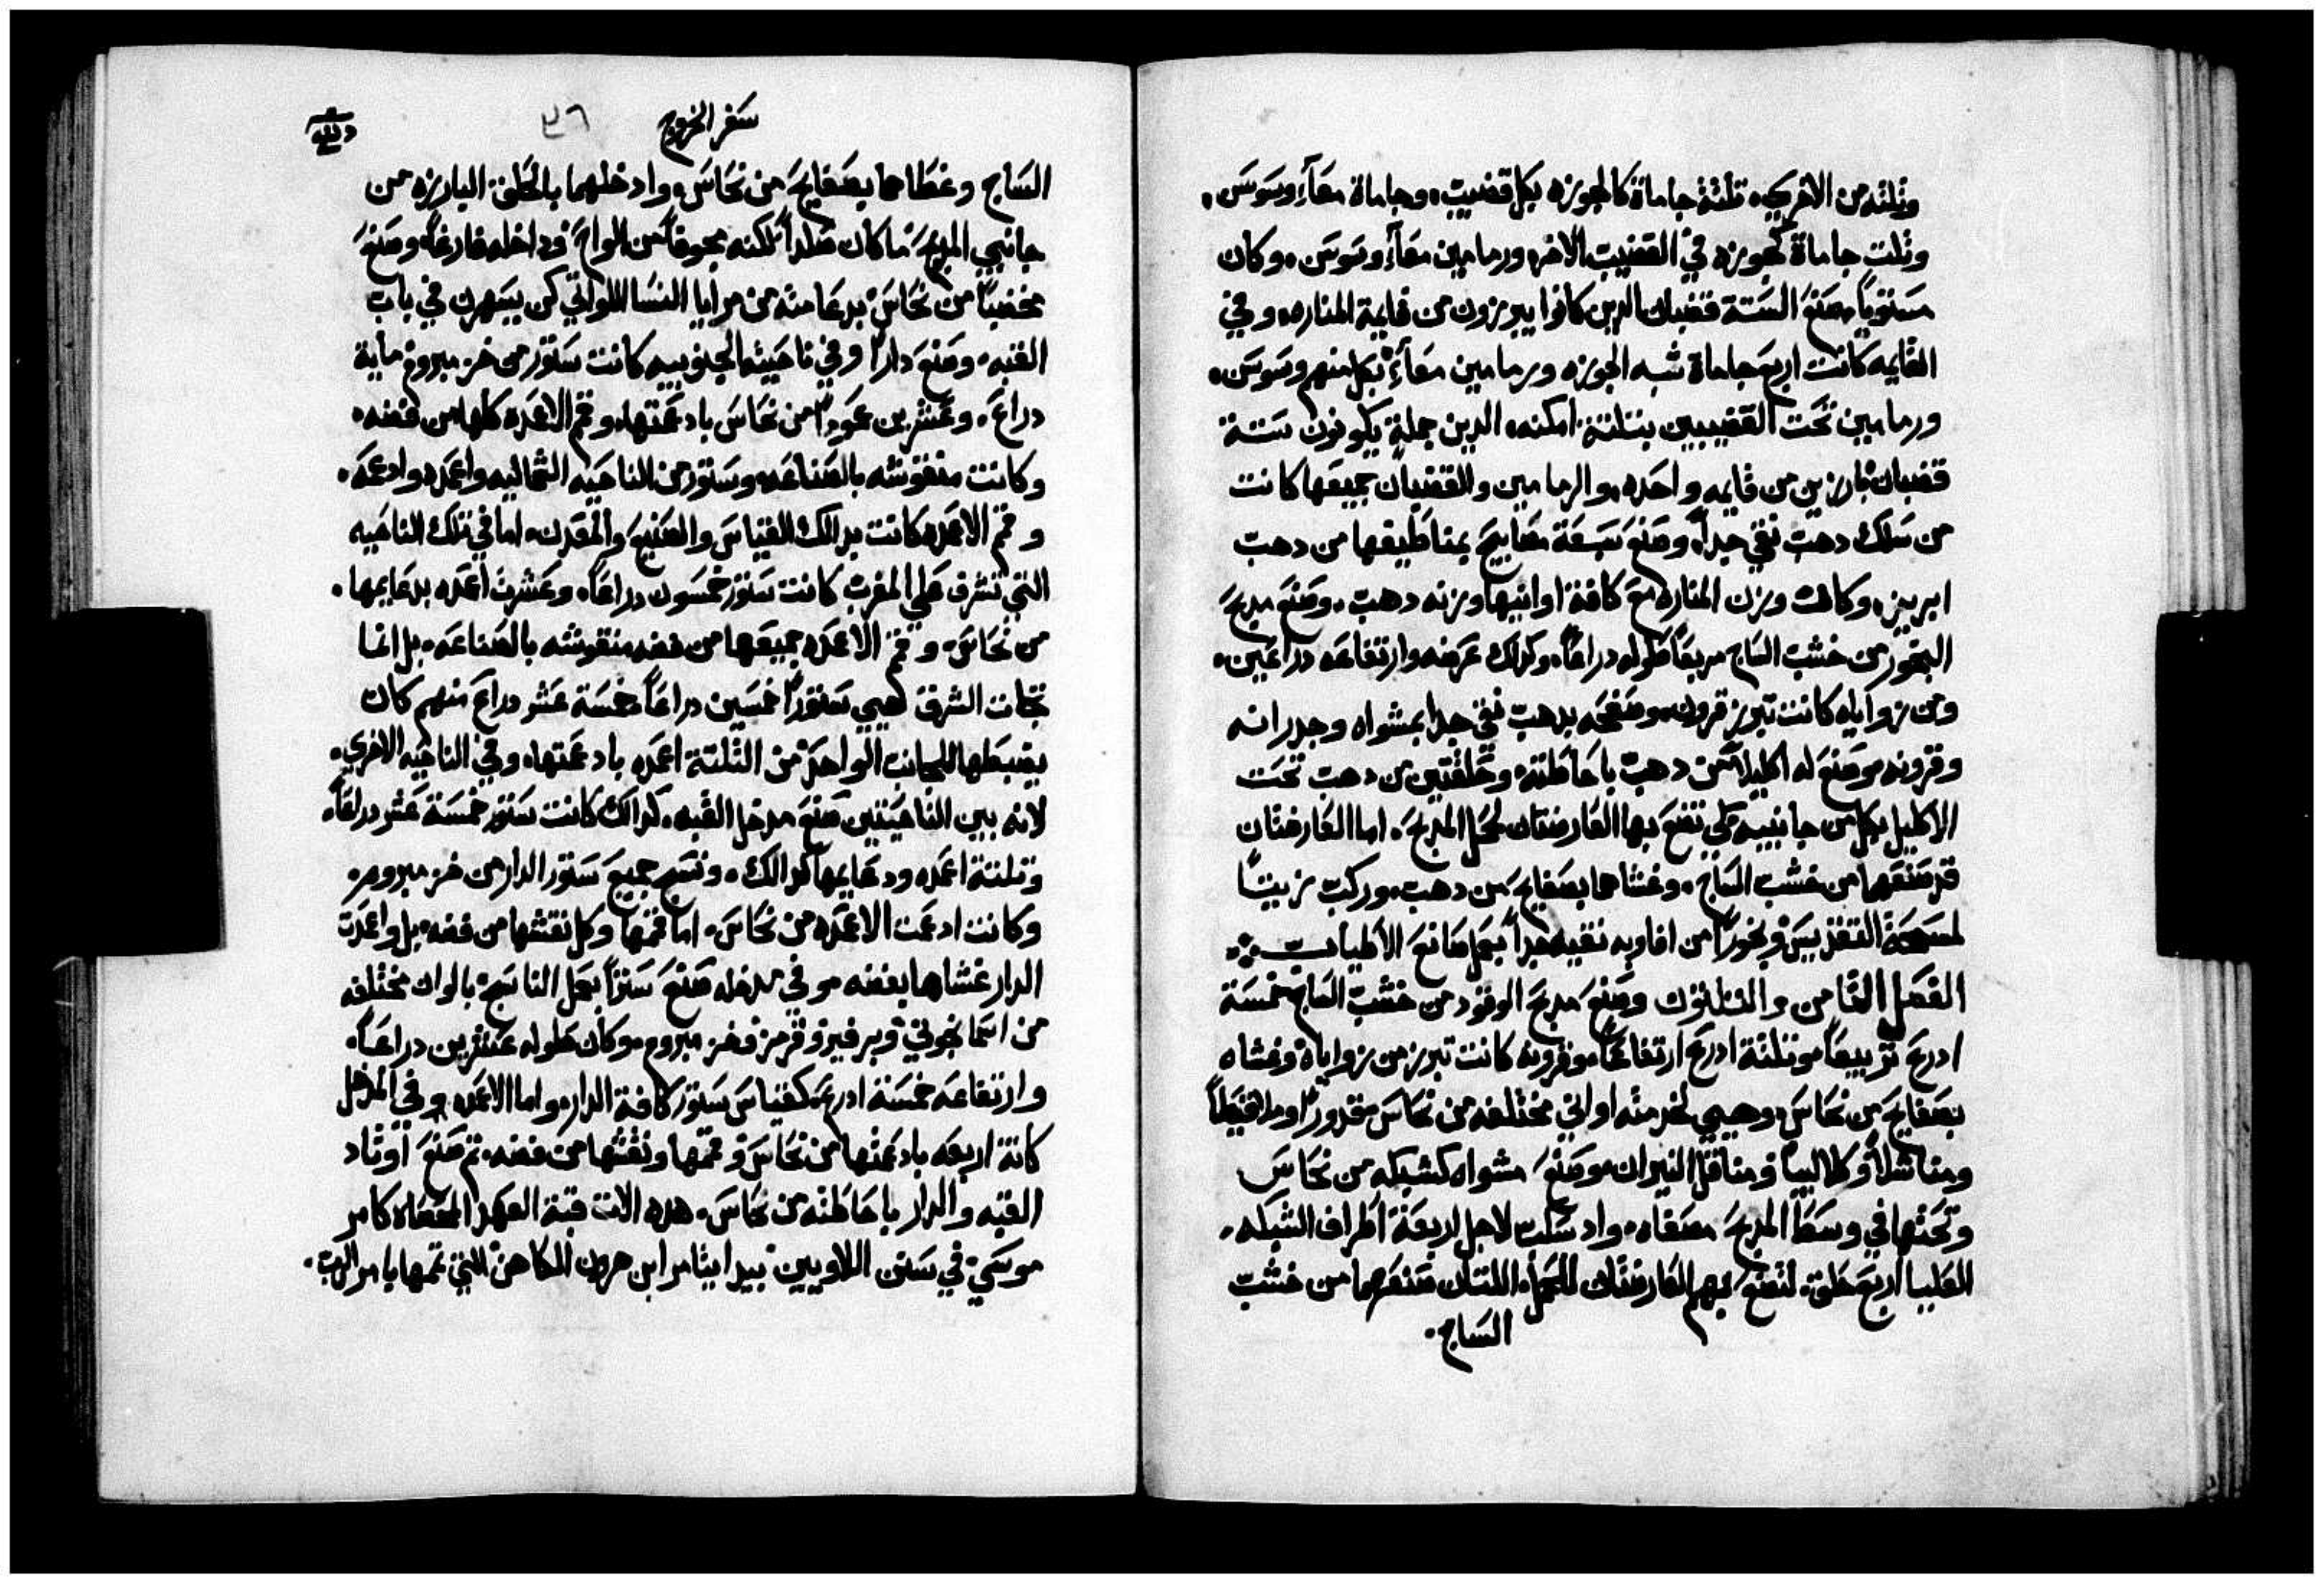 وثلثه من الاخري، تلثة جاماة كالجوزه بكل قضيب، وجاماة معاً، وسوسن،
وثلت جاماة كجوزه في القضيب الاخر، ورمامين معاً، وسوسن، وكان
مستوياً صنع الستة قضبان الدين كانوا يبرزون من قايمة المناره، وفي
القايمه كانت اربع جاماة شبه الجوزه ورمامين معاً، بكل منهم وسوسن،
ورمامين تحت القضيبين بتلتة امكنه، الدين جملة يكونون ستة
قضبان بارزين من قايمه واحده، والرمامين والقضبان جميعها كانت
من سلك دهب نقي جداً، وصنع سبعة مصابيح بمناطيفها من دهب
ابريز، وكان وزن المناره مع كافة اوانيها وزنه دهب، وصنع مدبح
البخور من خشب الساج مربعاً طوله دراعاً، وكدلك عرضه وارتفاعه دراعين،
ومن زواياه كانت تبرز قرون، وصفحه بدهب نقي جدا بمشواه وجدرانه
وقرونه، وصنع له اكليلاً من دهب باحاطته، وحلقتين من دهب تحت
الاكليل بكل من جانبيه لكي تضع بها العارضتان لحمل المدبح، اما العارضتان
قد صنعهما من خشب الساج، وغشاهما بصفايح من دهب، وركب زيتاً
لمسحة التقديس وبخوراً من افاويه نقيه جداً بعمل صانع الاطياب
الفصل الثامن والثلثون وصنع مدبح الوقود من خشب الساج خمسة
ادرع تربيعاً، وتلتة ادرع ارتفاعاً، وقرونه كانت تبرز من زواياه وغشاه
بصفايح من نحاس، وهيي لخدمته اواني مختلفه من نحاس قدوراً وملاقيطاً
ومناشلاً وكلاليباً ومناقل النيران، وصنع مشواه كشبكه من نحاس
وتحتها في وسط المدبح مصفاه، واد سكب لاجل اربعة اطراف الشبكه
العليا اربع حلق، لتضع بهم العارضتان للحمل، اللتان صنعهما من خشب
الساج،
سفر الخروج ٣٦
الساج وغطاهما بصفايح من نحاس، وادخلهما بالحلق البارزه من
جانبي المدبح، ما كان صلداً لكنه مجوفاً من الواح وداخله فارغاً، وصنع
مخضباً من نحاس بدعامته من مرايا النسا اللواتي كن يسهرن في باب
القبه، وصنع داراً وفي ناحيته الجنوبيه كانت ستور من خز مبروم ماية
دراع، وعشرين عموداً من نحاس بادعمتها، وقمم الاعمده كلها من فضه،
وكانت منقوشه بالصناعه، وستور من الناحيه الشماليه واعمده وادعمه،
وقمم الاعمده كانت بدالك القياس والصنيع والمعدن، اما في تلك الناحيه
التي تشرف علي المغرب كانت ستور خمسون دراعاً، وعشرت اعمده بدعايمها،
من نحاس، وقمم الاعمده جميعها من فضه منقوشه بالصناعه، بل انما
تجاه الشرق هيي ستوراً خمسين دراعاً، خمسة عشر دراع منهم كان
يضبطها للجانب الواحد من التلتة اعمده بادعمتها، وفي الناحيه الاخري،
لانه بين الناحيتين صنع مدخل القبه، كدالك كانت ستور خمسة عشر دراعاً،
وتلتة اعمده ودعايمها كدالك، ونسج جميع ستور الدار من خز مبروم،
وكانت ادعمت الاعمده من نحاس، اما قممها وكل نقشها من فضه، بل واعمدت
الدار غشاها بفضه، وفي مدخله صنع ستراً بعمل الناسج، بالوان مختلفه
من اسمانجوني وبرفير وقرمز وخز مبروم، وكان طوله عشرين دراعاً،
وارتفاعه خمسة ادرع كقياس ستور كافة الدار، واما الاعمده وفي المدخل
كانة اربعه بادعمتها من نحاس وقممها ونقشها من فضه، تم صنع اوتاد
القبه والدار باحاطته من نحاس، هده الات قبة العهد المحصاه كامر
موسي، في سنن اللاويين بيد ايتامر ابن هرون الكاهن التي تممها بامر الرب،